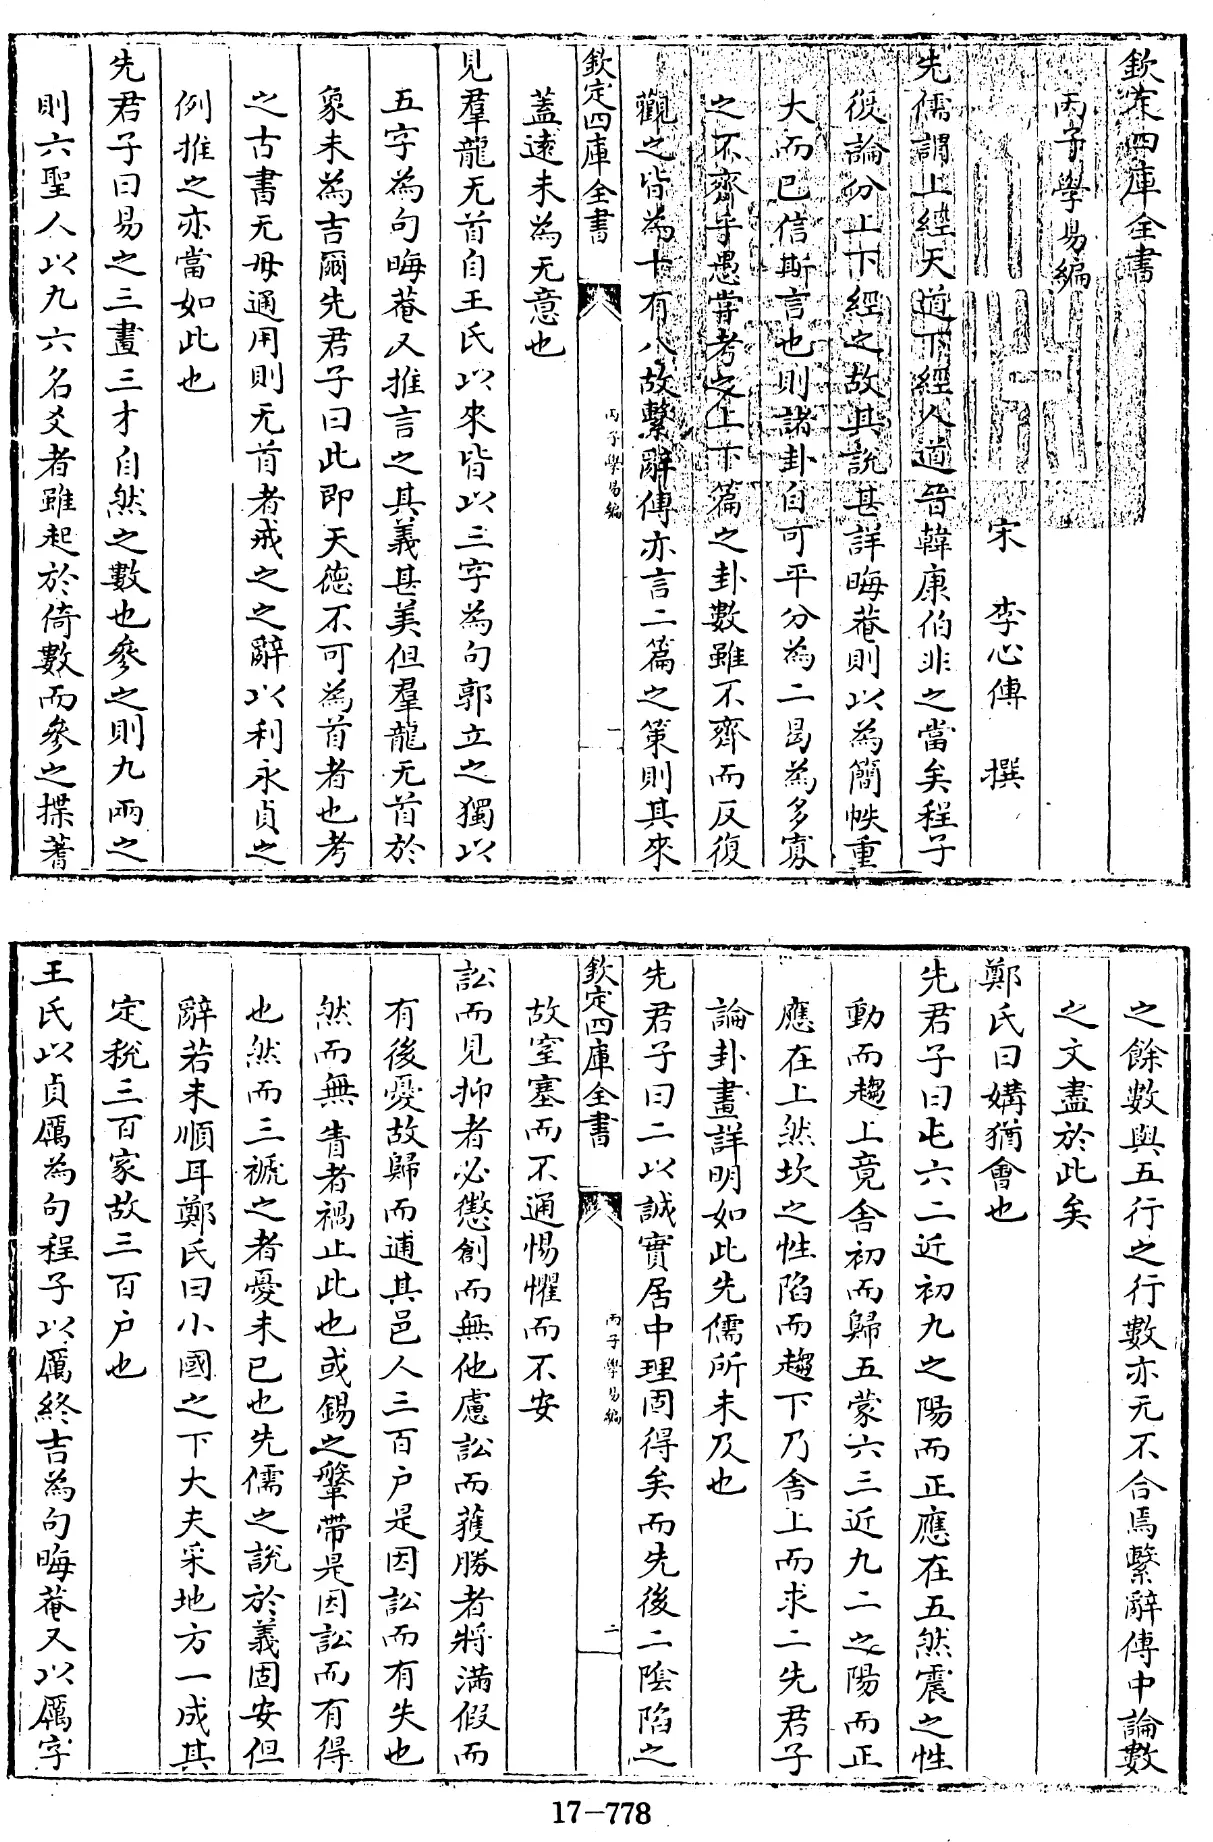 欽定四庫全書
丙子學易編
宋 李心傳 撰
先儒謂上經天道下經人道晉韓康伯非之當矣程子
後論分上下經之故其說甚詳晦菴則以為簡帙重
大而已信斯言也則諸卦自可平分為二曷為多寡
之不齊乎愚嘗考之上下篇之卦數雖不齊而反復
觀之皆為十有八故繫辭傳亦言二篇之策則其來
欽定四庫全書
丙子學易編
一
蓋遠未為无意也
見羣龍无首自王氏以來皆以三字為句郭立之獨以
五字為句晦菴又推言之其義甚美但羣龍无首於
象未為吉爾先君子曰此即天德不可為首者也考
之古書无毋通用則无首者戒之之辭以利永貞之
例推之亦當如此也
先君子曰易之三畫三才自然之數也參之則九兩之
則六聖人以九六名爻者雖起於倚數而參之揲蓍
之餘數與五行之行數亦无不合焉繫辭傳中論數
之文盡於此矣
鄭氏曰媾猶會也
先君子曰屯六二近初九之陽而正應在五然震之性
動而趨上竟舍初而歸五蒙六三近九二之陽而正
應在上然坎之性陷而趨下乃舍上而求二先君子
論卦畫詳明如此先儒所未及也
先君子曰二以誠實居中理固得矣而先後二陰陷之
欽定四庫全書
丙子學易編
二
故窒塞而不通惕懼而不安
訟而見抑者必懲創而無他慮訟而獲勝者將滿假而
有後憂故歸而逋其邑人三百户是因訟而有失也
然而無眚者禍止此也或錫之鞶帶是因訟而有得
也然而三褫之者憂未已也先儒之說於義固安但
辭若未順耳鄭氏曰小國之下大夫采地方一成其
定稅三百家故三百户也
王氏以貞厲為句程子以厲終吉為句晦菴又以厲字
17-778